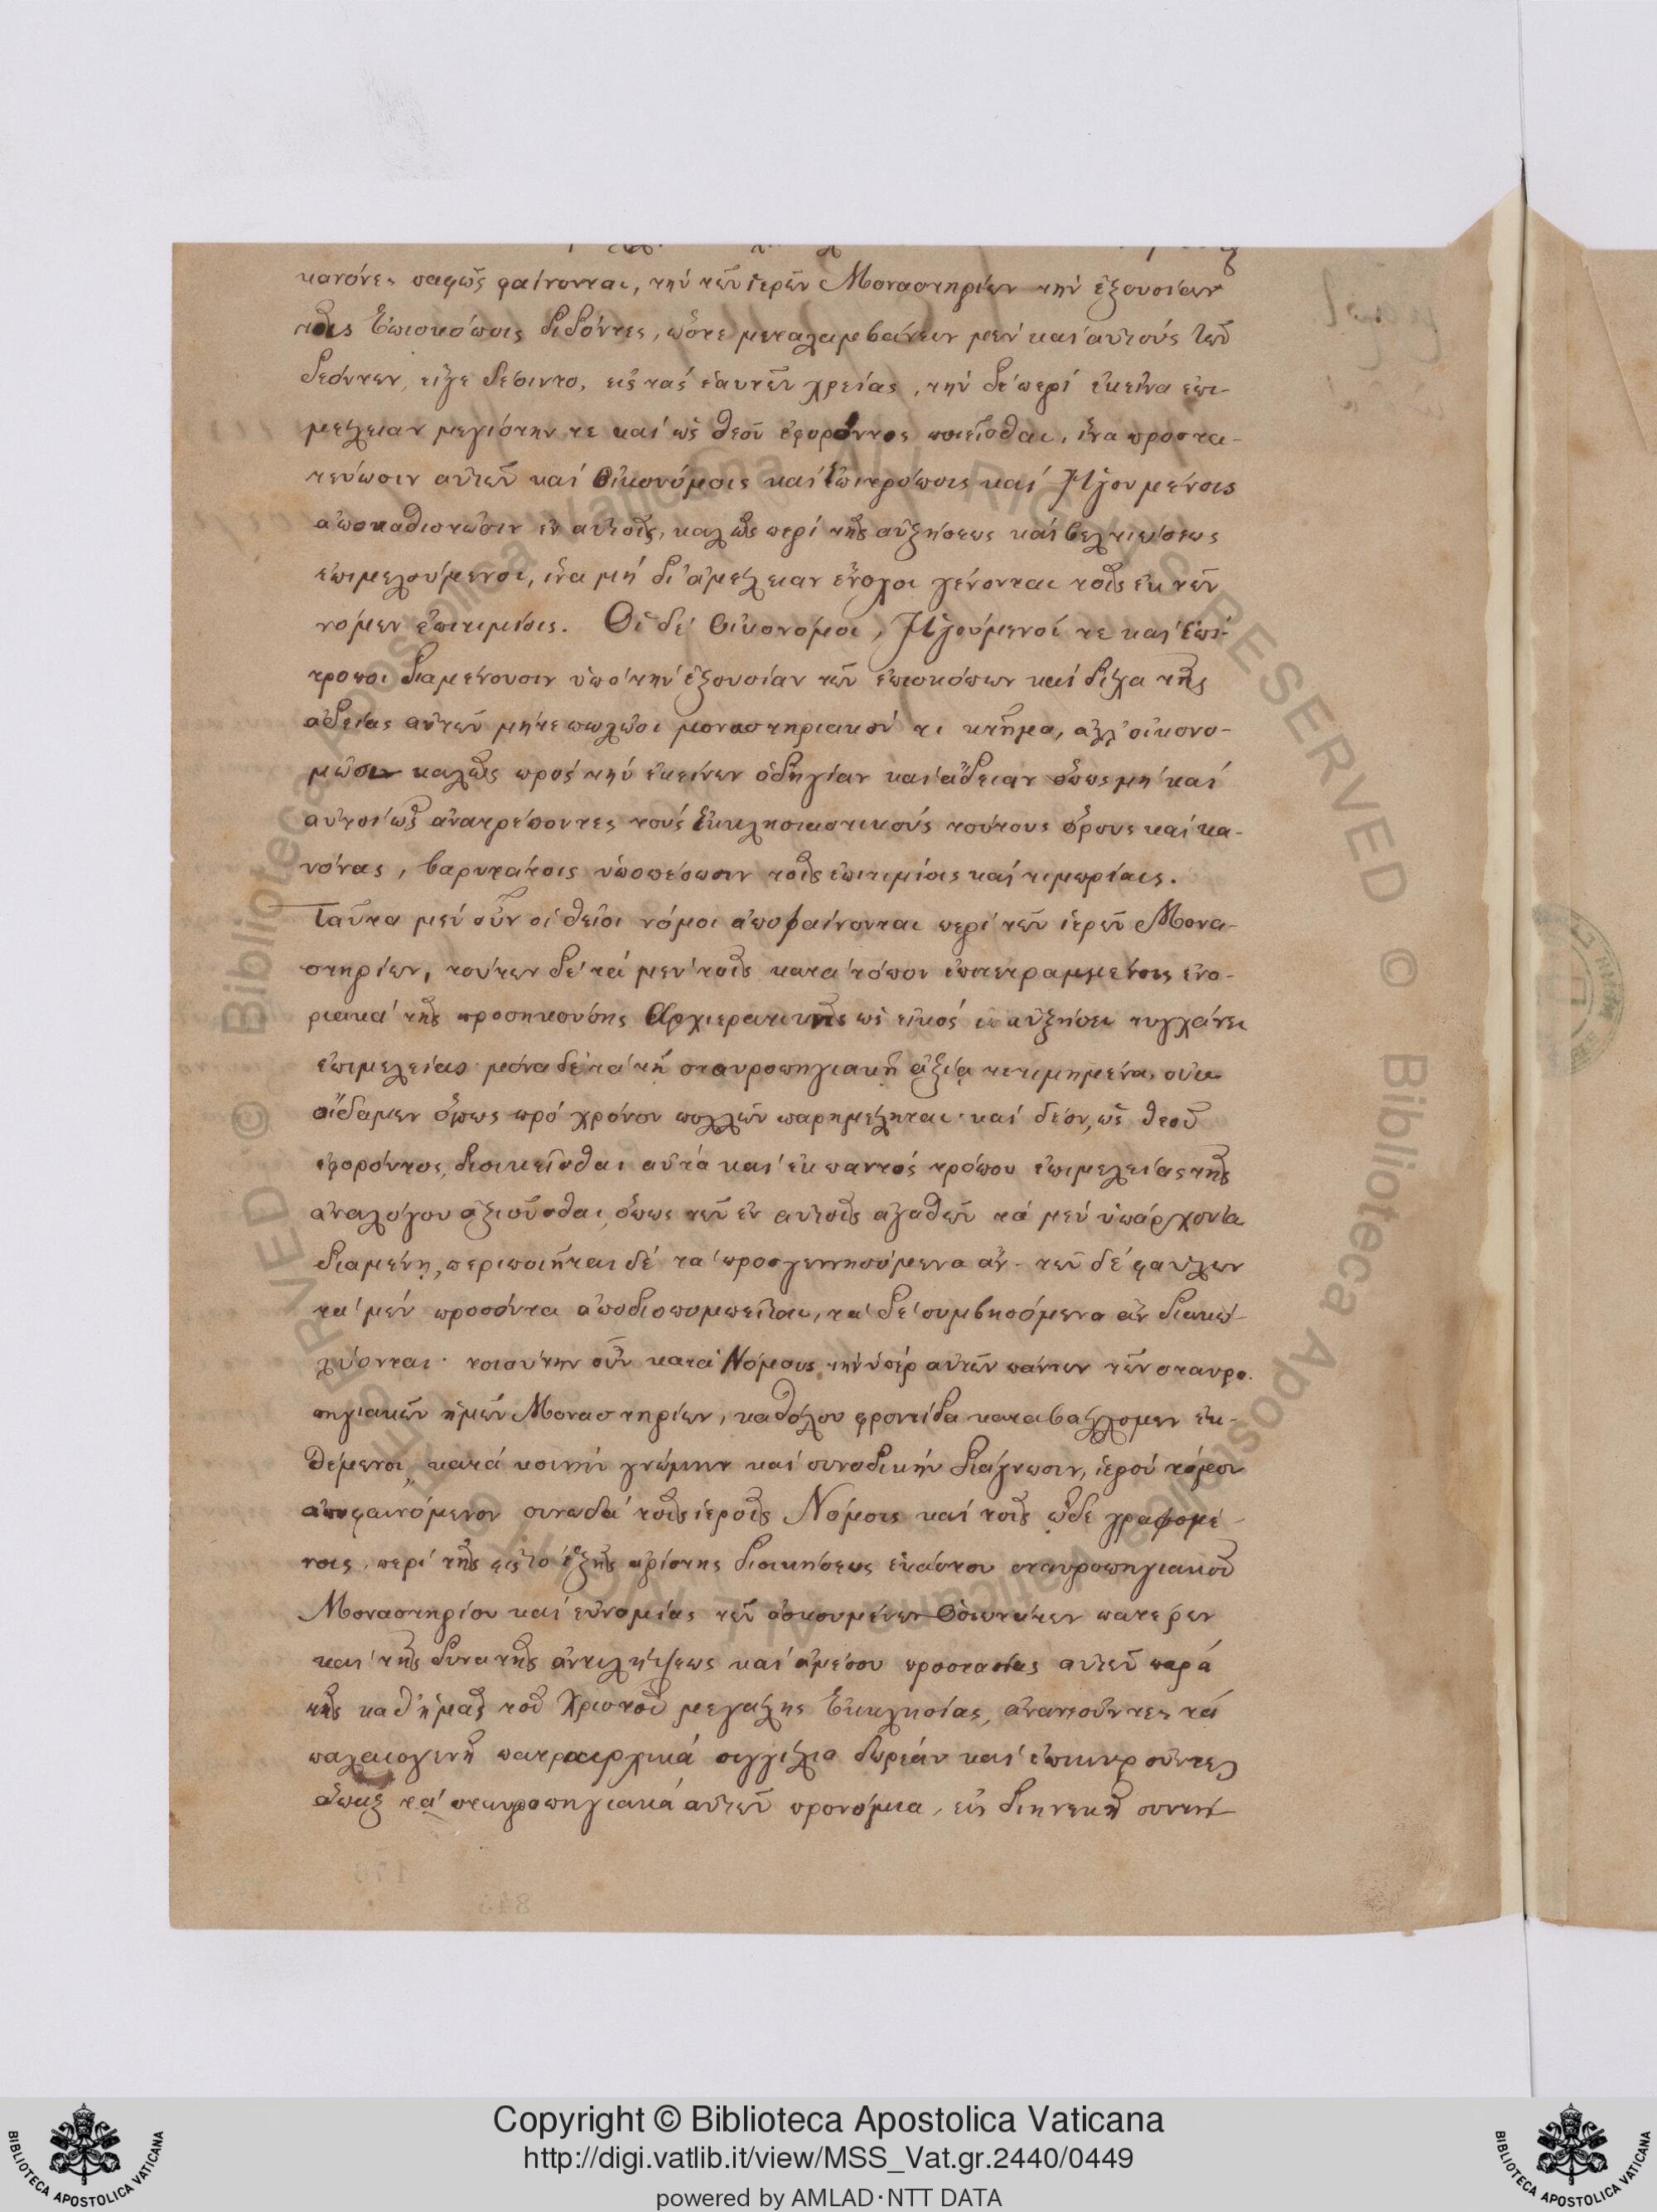 κανόνες σαφῶς φαίνονται, τὴν τῶν ἱερῶν Μοναστηρίων τὴν ἐξουσίαν
τοῖς Ἐπισκόποις διδόντες, ὥστε μεταλαμβάνειν μὲν καὶ αὐτοὺς τῶν
δεόντων, εἴγε δέοιντο, εἰς τὰς ἑαυτῶν χρείας, τὴν δὲ περὶ ἐκεῖνα ἐπι-
μέλειαν μεγίστην τε καὶ ὡς θεοῦ ἐφορῶντος ποιεῖσθαι, ἵνα προστα-
τεύωσιν αὐτῶν καὶ Οἰκονόμοις καὶ Ἐπιτρόποις καὶ Ἡγουμένοις
ἀποκαθιστῶσιν ἐν αὐτοῖς, καλῶς περὶ τῆς αὐξήσεως καὶ βελτιώσεως
ἐπιμελούμενοι, ἵνα μὴ δι' ἀμέλειαν ἔνοχοι γένονται τοῖς ἐκ τῶν
νόμων ἐπιτιμίοις. Οἱ δὲ Οἰκονόμοι, Ἡγούμενοί τε καὶ Ἐπί-
τροποι διαμένουσιν ὑπὸ τὴν ἐξουσίαν τῶν ἐπισκόπων καὶ δίχα τῆς
ἀδείας αὐτῶν μήτε πωλῶσι μοναστηριακόν τι κτῆμα, ἀλλ' οἰκονο-
μῶσιν καλῶς πρὸς τὴν ἐκείνων ὁδηγίαν καὶ ἄδειαν ὅπως μὴ καὶ
αὐτοὶ ὡς ἀνατρέποντες τοὺς Ἐκκλησιαστικοὺς τούτους ὅρους καὶ κα-
νόνας, βαρυτάτοις ὑποπέσωσιν τοῖς ἐπιτιμίοις καὶ τιμωρίαις.
Ταῦτα μὲν οὖν οἱ θεῖοι νόμοι ἀποφαίνονται περὶ τῶν ἱερῶν Μονα-
στηρίων, τούτων δὲ τὰ μὲν τοῖς κατὰ τόπον ἐπιτετραμμένοις ἐνο-
ριακὰ τῆς προσηκούσης Ἀρχιερατικῆς ὡς εἰκὸς αὐξήσει τυγχάνει
ἐπιμελείας· μόνα δὲ τὰ τῇ σταυροπηγιακῇ ἀξίᾳ τετιμημένα, οὐκ
οἴδαμεν ὅπως πρὸ χρόνον πολλῶν παρημέληται· καὶ δέον, ὡς θεοῦ
ἐφορόντος, διοικεῖσθαι αὐτὰ καὶ ἐκ παντὸς τρόπου ἐπιμελείας τῆς
ἀναλόγου ἀξιοῦσθαι, ὅπως τῶν ἐν αὐτοῖς ἀγαθῶν τὰ μὲν ὑπάρχοντα
διαμένῃ, περιποιῆται δὲ τὰ προσγεννησόμενα ἄν· τῶν δὲ φαύλων
τὰ μὲν προσόντα ἀποδιοπομπεῖται, τὰ δὲ συμβησόμενα ἂν διακω-
λύονται· τοιαύτην οὖν κατὰ Νόμους τὴν ὑπὲρ αὐτῶν πάντων τῶν σταυρο-
πηγιακῶν ἡμῶν Μοναστηρίων, καθόλου φροντίδα καταβάλλομεν ἐκ-
θέμενοι, κατὰ κοινὴν γνώμην καὶ συνοδικὴν διάγνωσιν, ἱερὸν τόμον
ἀποφαινόμενον συνῳδὰ τοῖς ἱεροῖς Νόμοις καὶ τοῖς ὧδε γραφομέ-
νοις, περὶ τῆς εἰς τὸ ἑξῆς ἀρίστης διοικήσεως ἑκάστου σταυροπηγιακοῦ
Μοναστηρίου καὶ εὐνομίας τῶν ἀσκουμένων Ὁσιωτάτων πατέρων
καὶ τῆς δυνατῆς ἀντιλήψεως καὶ ἀμέσου προστασίας αὐτῶν παρὰ
τῆς καθ' ἡμᾶς τοῦ Χριστοῦ μεγάλης Ἐκκλησίας, ἀνανεοῦντες τὰ
παλαιογενῆ πατριαρχικὰ σιγγίλια δωρεὰν καὶ ἐπικυροῦντες
ἅπαξ τὰ σταυροπηγιακὰ αὐτῶν προνόμια, εἰς διηνεκῆ συντή-
Copyright © Biblioteca Apostolica Vaticana
http://digi.vatlib.it/view/MSS_Vat.gr.2440/0449
powered by AMLAD·NTT DATA